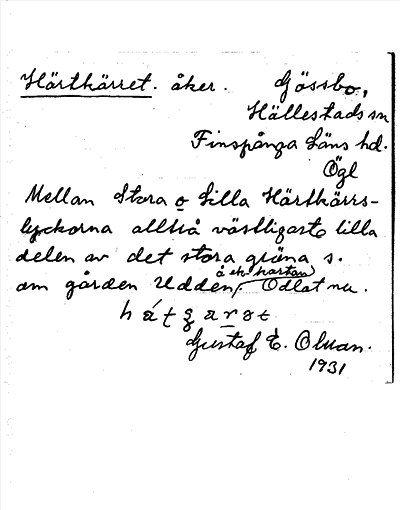 Härtkärret. åker. Gössbo,
Hällestads sn
Finspånga läns hd.
Ögl
Mellan Stora o Lilla Härtkärrs-
lyckorna alltså västligaste lilla
delen av det stora gräna s.
å ek. kartan
om gården Udden, Odlat nu.
Gustaf E. Olman.
1931